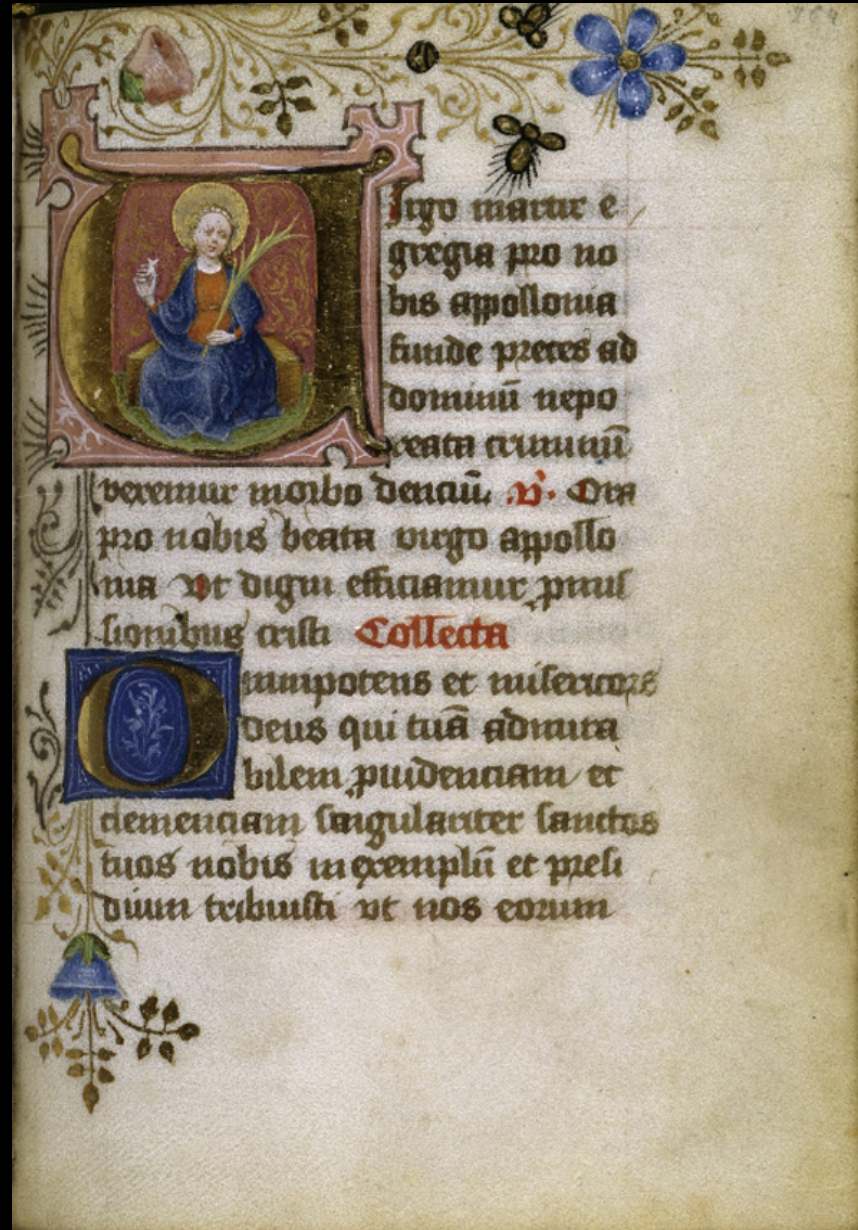 Virgo martir e
gregia pro no
bis appollonia
funde preces ad
dominū ne pro
reatu criminū
vexemur morbo denciū. v̄. Ora
pro nobis beata virgo appollo
nia Vt digni efficiamur pmis
sionibus cristi Collecta
Omnipotens et misericors
deus qui tuā admira
bilem puidenciam et
clemenciam singulariter sanctos
tuos nobis in exemplū et presi
dium tribuisti vt nos eorum